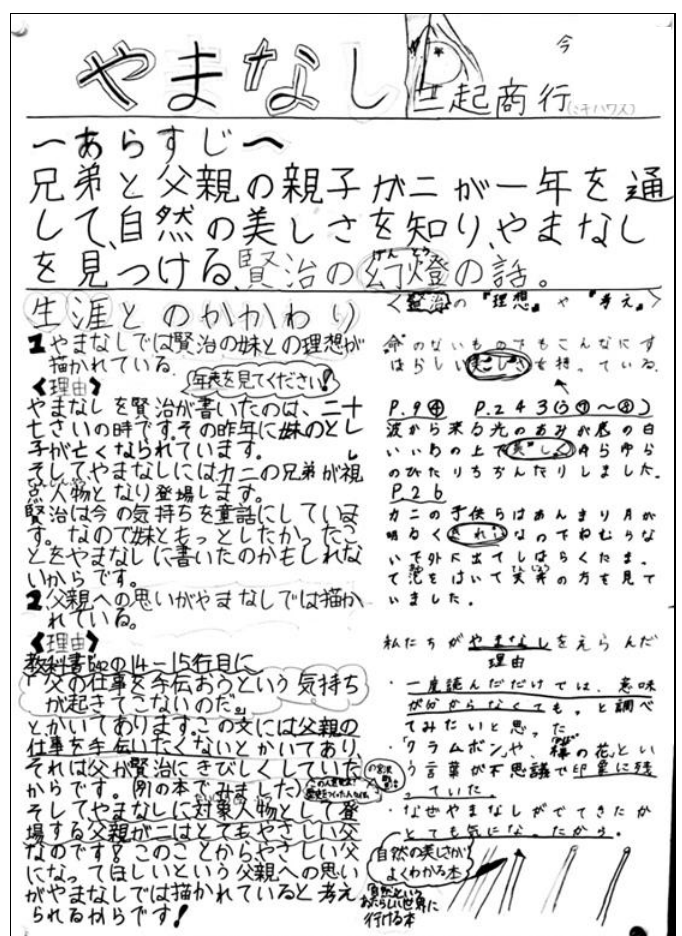 やまなし
今
三起商行(ミキハウス)
~あらすじ~
兄弟と父親の親子がニが一年を通
して、自然の美しさを知り、やまなし
を見つける、賢治の幻燈の話。
げんとう
生涯とのかかわり
1やまなしでは賢治の妹との理想が
描かれている。
年表を見てください!
<理由>
やまなしを賢治が書いたのは、二十
七さいの時です。その昨年に妹のとし
子が亡くなられています。
そしてやまなしにはカニの兄弟が視
点人物となり登場します。
賢治は今の気持ちを童話にしていま
す。なので妹ともっとしたかったこ
とをやまなしに書いたのかもしれな
いからです。
2父親への思いがやまなしでは描か
れている。
<理由>
教科書の14-15行目に
「父の仕事を手伝おうという気持ち
が起きてこないのだ。」
とかいてあります。この文には父親の
仕事を手伝いたくないとかいてあり、
それは父が賢治にきびしくしていた
からです。(別の本でみました)
そしてやまなしに対象人物として登
場する父親がニはとてもやさしい父
なのです。このことから、やさしい父
になってほしいという父親への思い
がやまなしでは描かれていると考え
られるからです!
<賢治の『理想』や『考え』>
命のないものでもこんなにす
ばらしい美しさを持っている。
P.9④ P.243(5⑦~⑧)
波から来る光のあみが底の白
いいわの上で美しくゆらゆら
のびたりちぢんだりしました。
P.26
カニの子供らはあんまり月が
明るくきれいなのでねむらな
いで外に出てしばらくだま
って泡をはいて天井の方を見て
いました。
私たちがやまなしをえらんだ
理由
・一度読んだだけでは、意味
が分からなくても。っと調べ
てみたいと思った
・「クラムボン」や、「樺の花」とい
う言葉が不思議で印象に残
っていた。
・なぜやまなしができたか
とても気になったから。
自然の美しさが
よくわかる本
自然という
あたらしい世界に
行ける本